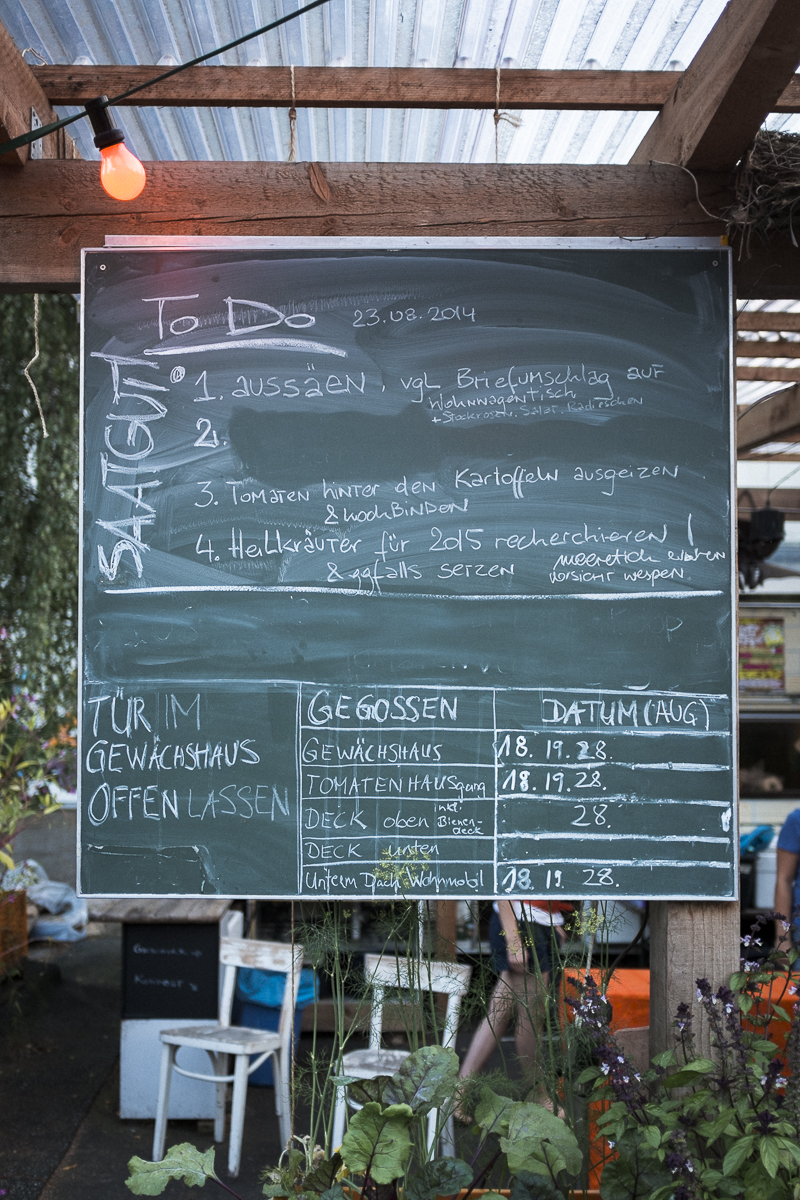 To Do 23.08.2014
SAATGUT!
1. aussäen, vgl Briefumschlag auf
Wohnwagentisch
+ Stockrosen, Salat, Radieschen
2.
3. Tomaten hinter den Kartoffeln ausgeizen
& hochBinden
4. Heilkräuter für 2015 recherchieren!
& ggfalls setzen
vorsicht wespen
TÜR IM
GEWÄCHSHAUS
OFFEN LASSEN
GEGOSSEN DATUM (AUG)
GEWÄCHSHAUS 18. 19. 28.
TOMATENHAUSgang 18. 19. 28.
DECK oben inkl. Bienen-deck 28.
DECK unten
Unterm Dach Wohnmobil 18. 19. 28.